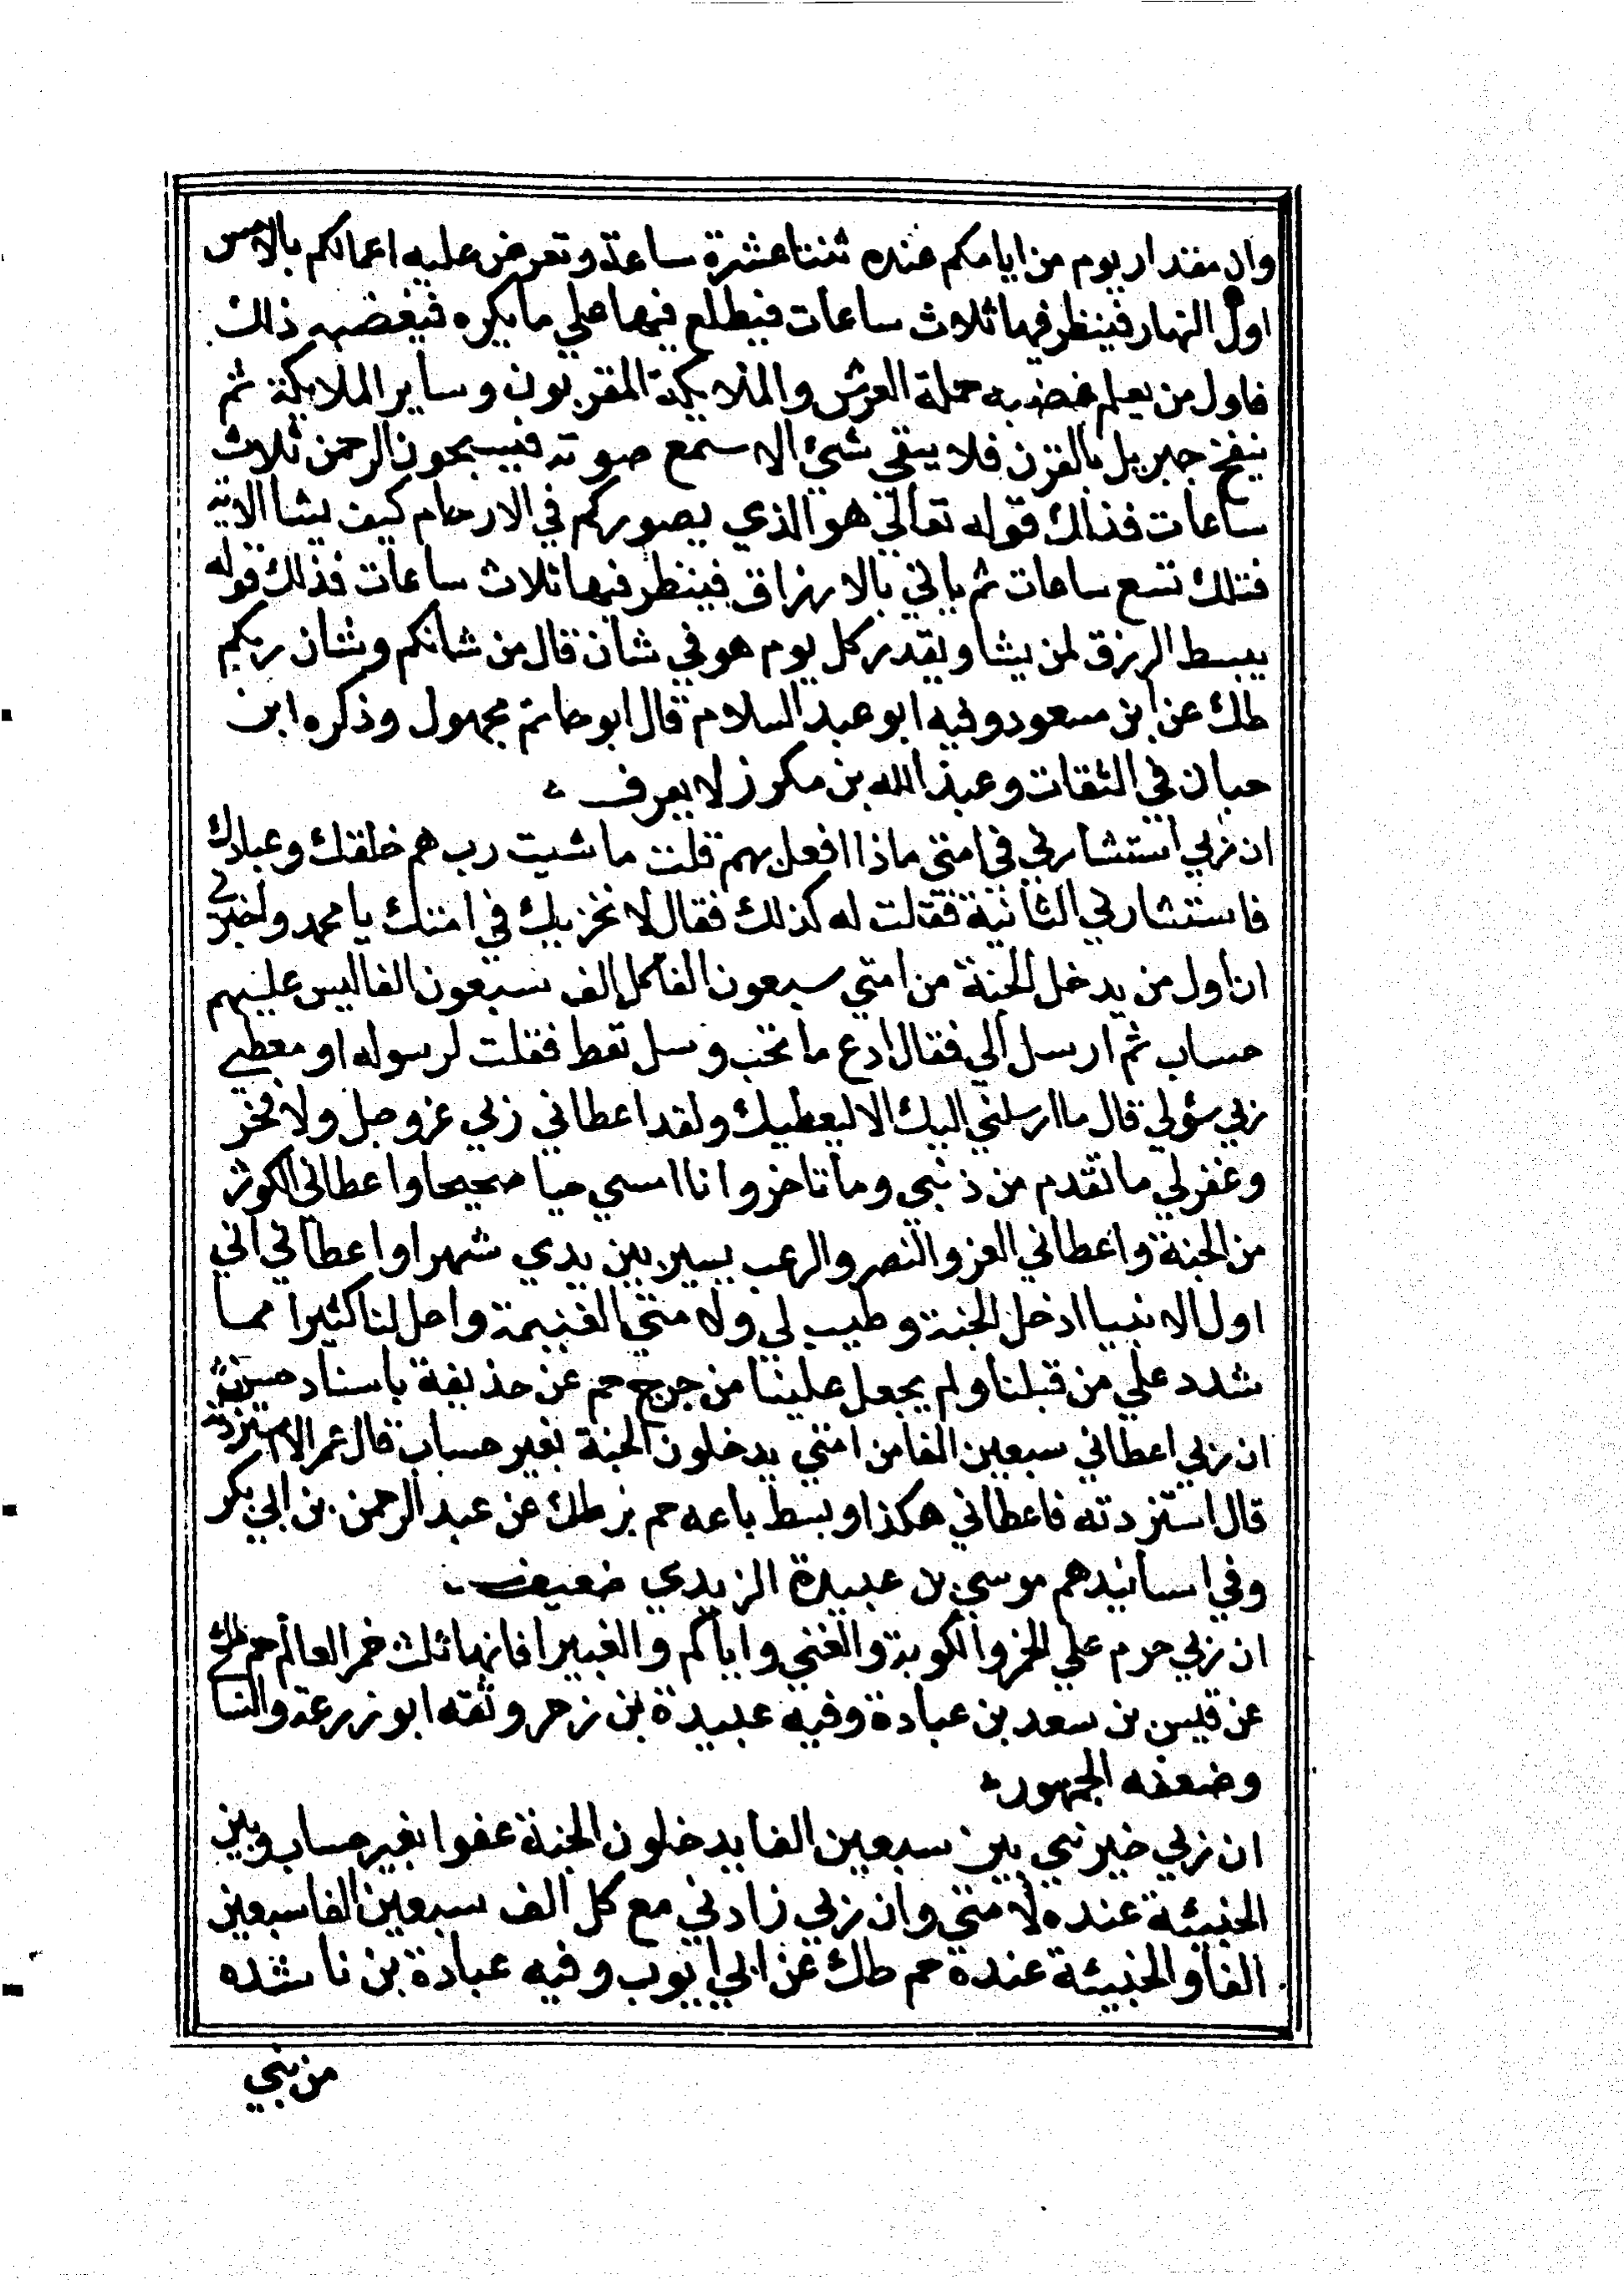 وان مقدار يوم من ايامكم عنده ثنتا عشرة ساعة وتعرض عليه اعمالكم بالامس
اول النهار فينظر فيها ثلاث ساعات فيطلع فيها علي ما يكره فيغضبه ذلك
فاول من يعلم غضبه حملة العرش والملايكة المقربون وساير الملايكة ثم
ينفخ جبريل بالقرن فلا يبقي شئ الا سمع صوته فيسبحون الرحمن ثلاث
ساعات فذلك قوله تعالي هو الذي يصوركم في الارحام كيف يشا الاية
فتلك تسع ساعات ثم ياتي بالارزاق فينظر فيها ثلاث ساعات فذلك قوله
يبسط الرزق لمن يشا ويقدر كل يوم هو في شان قال من شانكم وشان ربكم
طك عن ابن مسعود وفيه ابو عبد السلام قال ابو حاتم مجهول وذكره ابن
حبان في الثقات وعبد الله بن مكرز لا يعرف
ان ربي استشارني في امتي ماذا افعل بهم قلت ما شيت رب هم خلقك وعبادك
فاستشارني الثانية فقلت له كذلك فقال لا نخزيك في امتك يا محمد واخبرني
ان اول من يدخل الجنة من امتي سبعون الفا كل الف سبعون الفا ليس عليهم
حساب ثم ارسل الي فقال ادع ما تحب وسل تعط فقلت لرسوله او معطي
ربي سؤلي قال ما ارسلني اليك الا ليعطيك ولقد اعطاني ربي عز وجل ولا فخر
وغفر لي ما تقدم من ذنبي وما تاخر وانا امسي حيا صحيحا واعطاني الكوثر
من الجنة واعطاني العز والنصر والرعب يسير بين يدي شهرا واعطاني اني
اول الانبيا ادخل الجنة وطيب لي ولامتي الغنيمة واحل لنا كثيرا مما
شدد علي من قبلنا ولم يجعل علينا من حرج حم عن حذيفة باسناد حسن
ان ربي اعطاني سبعين الفا من امتي يدخلون الجنة بغير حساب قال عمر الا استزدته
قال استزدته فاعطاني هكذا وبسط باعه حم بز طك عن عبد الرحمن بن ابي بكر
وفي اسانيدهم موسي بن عبيدة الزيدي ضعيف
ان ربي حرم علي الخمر والكوبة والغني واياكم والغبيرا فانها ثلث خمر العالم حم طك
عن قيس بن سعد بن عبادة وفيه عبيدة بن زحر وثقه ابو زرعة والنسا
وضعفه الجمهور
ان ربي خيرني بين سبعين الفا يدخلون الجنة عفوا بغير حساب وبين
الخبيئة عنده لامتي وان ربي زادني مع كل الف سبعين الفا سبعين
الفا والخبيئة عنده حم طك عن ابي ايوب وفيه عبادة بن ناشده
من بني